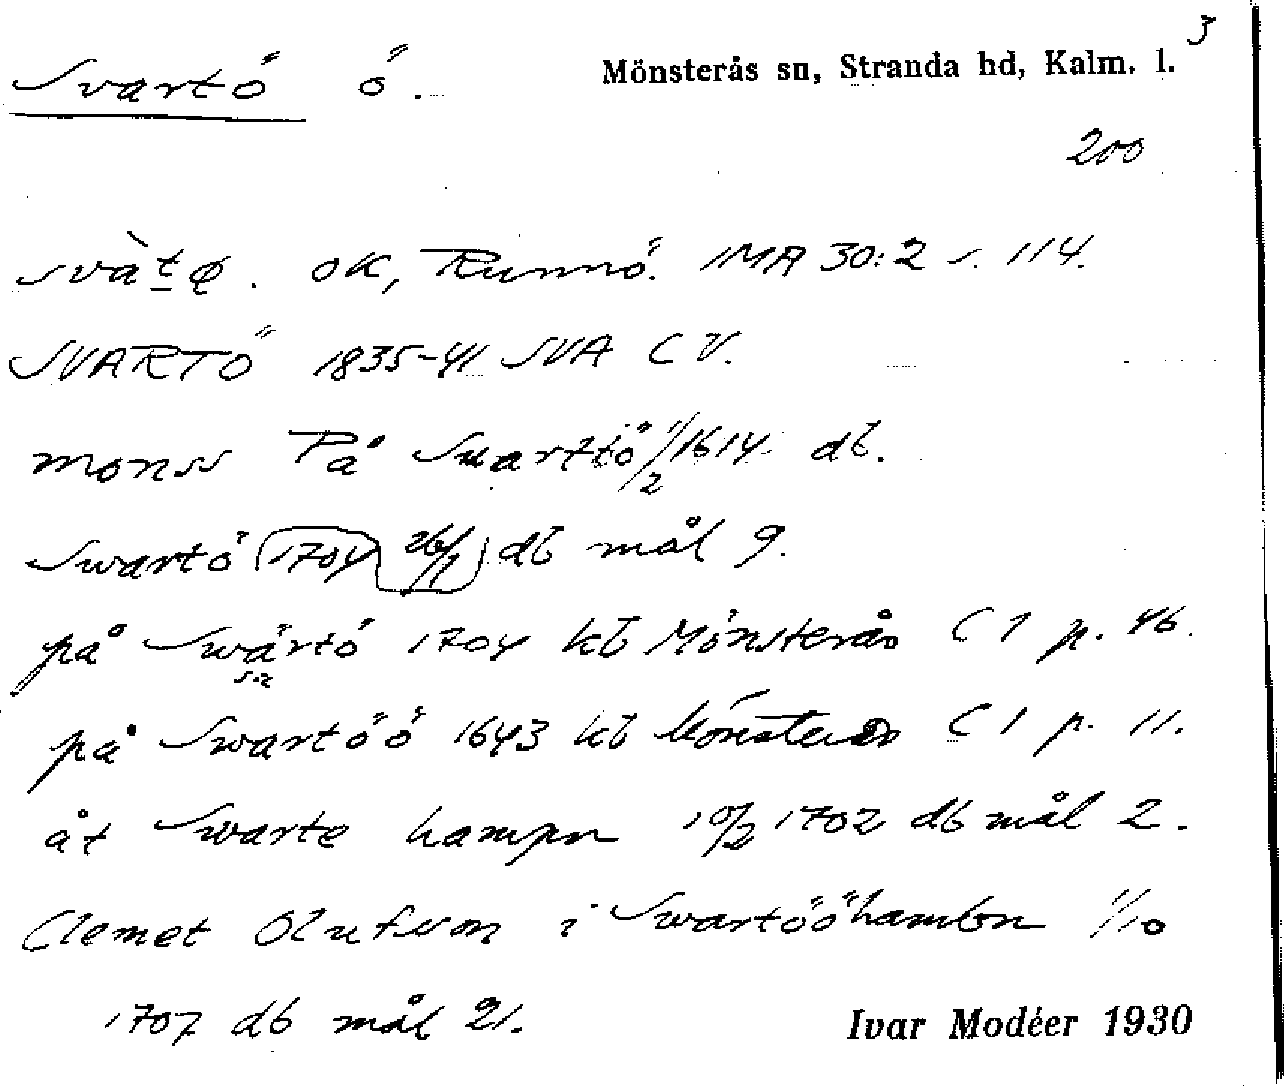 3
Svartö ö. Mönsterås sn, Stranda hd, Kalm. l.
200
svàtø. OK, Runnö. IMA 30:2 s. 114.
SVARTÖ 1835-41 SVA C V.
monss På Suarttö 1/2 1614 db.
Swartö (1704 26/1) db mål 9.
på Swärtö 1704 kb Mönsterås C 1 p. 46.
på Swartöö 1643 kb Mönsterås C 1 p. 11.
åt Swarte hampn 10/2 1702 db mål 2.
Clemet Olufson i Swartööhambn 1/10
1707 db mål 21.
Ivar Modéer 1930